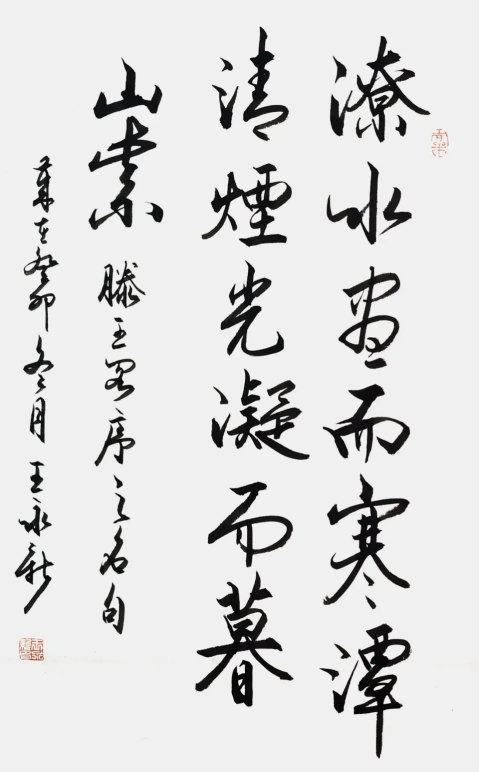 潦水盡而寒潭
清煙光凝而暮
山紫 滕王阁序之名句
歲在癸卯冬月 王永新